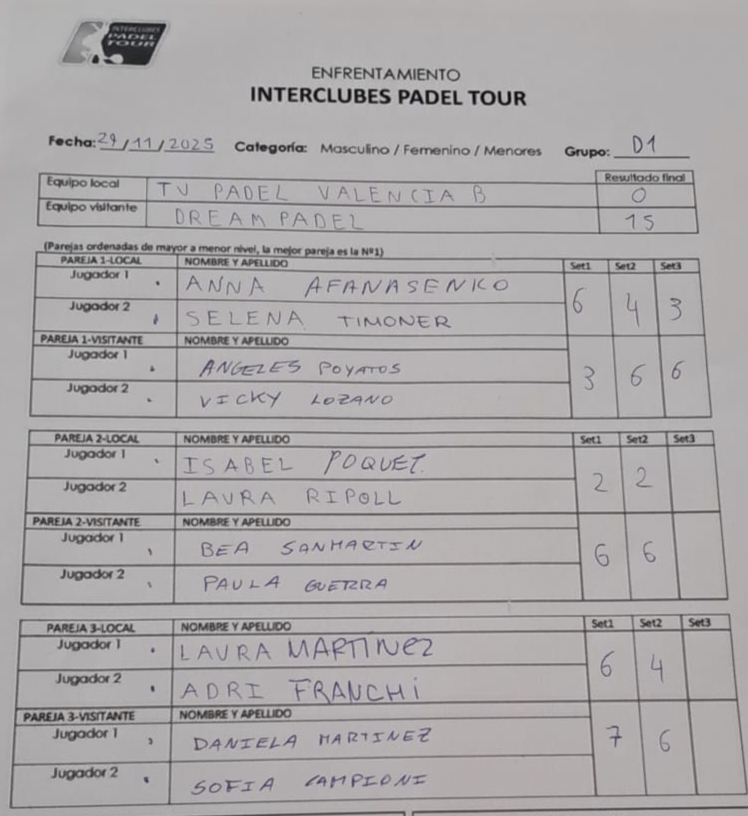 INTERCLUBES
PADEL
TOUR
ENFRENTAMIENTO
INTERCLUBES PADEL TOUR
Fecha: 29/11/2025 Categoría: Masculino / Femenino / Menores Grupo: D1
Resultado final
Equipo local TV PADEL VALENCIA B 0
Equipo visitante DREAM PADEL 15
(Parejas ordenadas de mayor a menor nivel, la mejor pareja es la Nº1)
PAREJA 1-LOCAL NOMBRE Y APELLIDO Set1 Set2 Set3
Jugador 1 ANNA AFANASENKO
6 4 3
Jugador 2 SELENA TIMONER
PAREJA 1-VISITANTE NOMBRE Y APELLIDO
Jugador 1 ANGELES POYATOS
3 6 6
Jugador 2 VICKY LOZANO
PAREJA 2-LOCAL NOMBRE Y APELLIDO Set1 Set2 Set3
Jugador 1 ISABEL POQUET.
2 2
Jugador 2 LAURA RIPOLL
PAREJA 2-VISITANTE NOMBRE Y APELLIDO
Jugador 1 BEA SANMARTIN
6 6
Jugador 2 PAULA GUERRA
PAREJA 3-LOCAL NOMBRE Y APELLIDO Set1 Set2 Set3
Jugador 1 LAURA MARTÍNEZ
6 4
Jugador 2 ADRI FRANCHI
PAREJA 3-VISITANTE NOMBRE Y APELLIDO
Jugador 1 DANIELA MARTINEZ
7 6
Jugador 2 SOFIA CAMPIONI